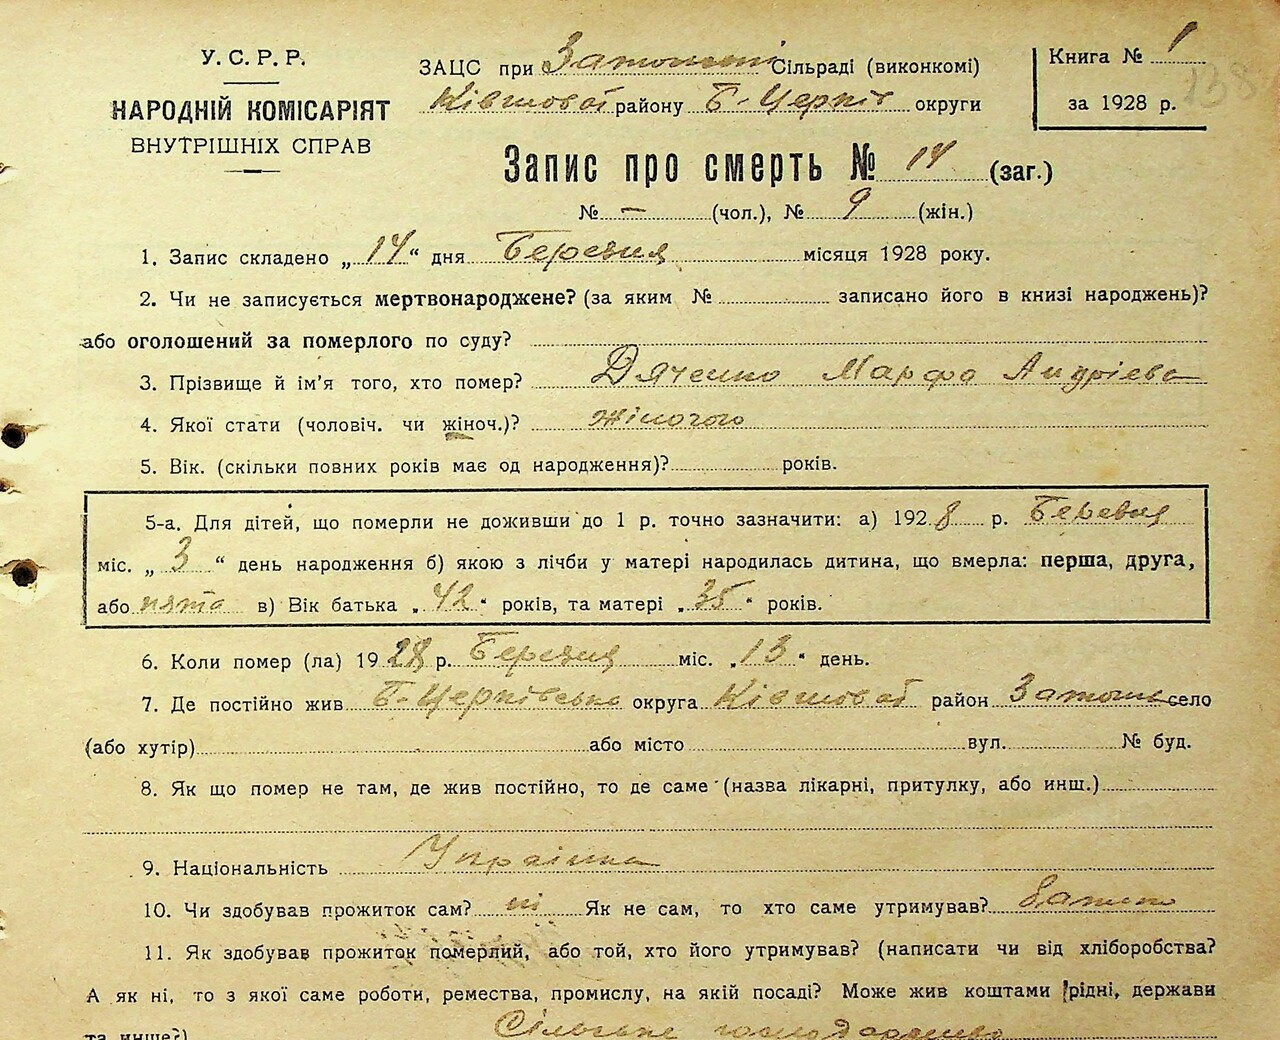 У. С. Р. Р.
НАРОДНІЙ КОМІСАРІЯТ
ВНУТРІШНІХ СПРАВ
ЗАЦС при Сільраді (виконкомі)
Ківшоват району Б-Церків округи
Книга № 1
за 1928 р.
138
Запис про смерть № 14 (заг.)
№ — (чол.), № 9 (жін.)
1. Запис складено „14“ дня Березня місяця 1928 року.
2. Чи не записується мертвонароджене? (за яким № записано його в книзі народжень)?
або оголошений за померлого по суду?
3. Прізвище й ім'я того, хто помер? Дяченко Марфа Андрієва
4. Якої стати (чоловіч. чи жіноч.)? жіночого
5. Вік. (скільки повних років має од народження)? років.
5-а. Для дітей, що померли не доживши до 1 р. точно зазначити: а) 1928 р. Березня
міс. „3“ день народження б) якою з лічби у матері народилась дитина, що вмерла: перша, друга,
або пята в) Вік батька „42“ років, та матері „35“ років.
6. Коли помер (ла) 1928 р. Березня міс. „13“ день.
7. Де постійно жив Б-Церківська округа Ківшоват район село
(або хутір) або місто вул. № буд.
8. Як що помер не там, де жив постійно, то де саме (назва лікарні, притулку, або инш.)
9. Національність Українка
10. Чи здобував прожиток сам? ні Як не сам, то хто саме утримував? Батько
11. Як здобував прожиток померлий, або той, хто його утримував? (написати чи від хліборобства?
А як ні, то з якої саме роботи, ремества, промислу, на якій посаді? Може жив коштами рідні, держави
та инше?) Сільське господарство